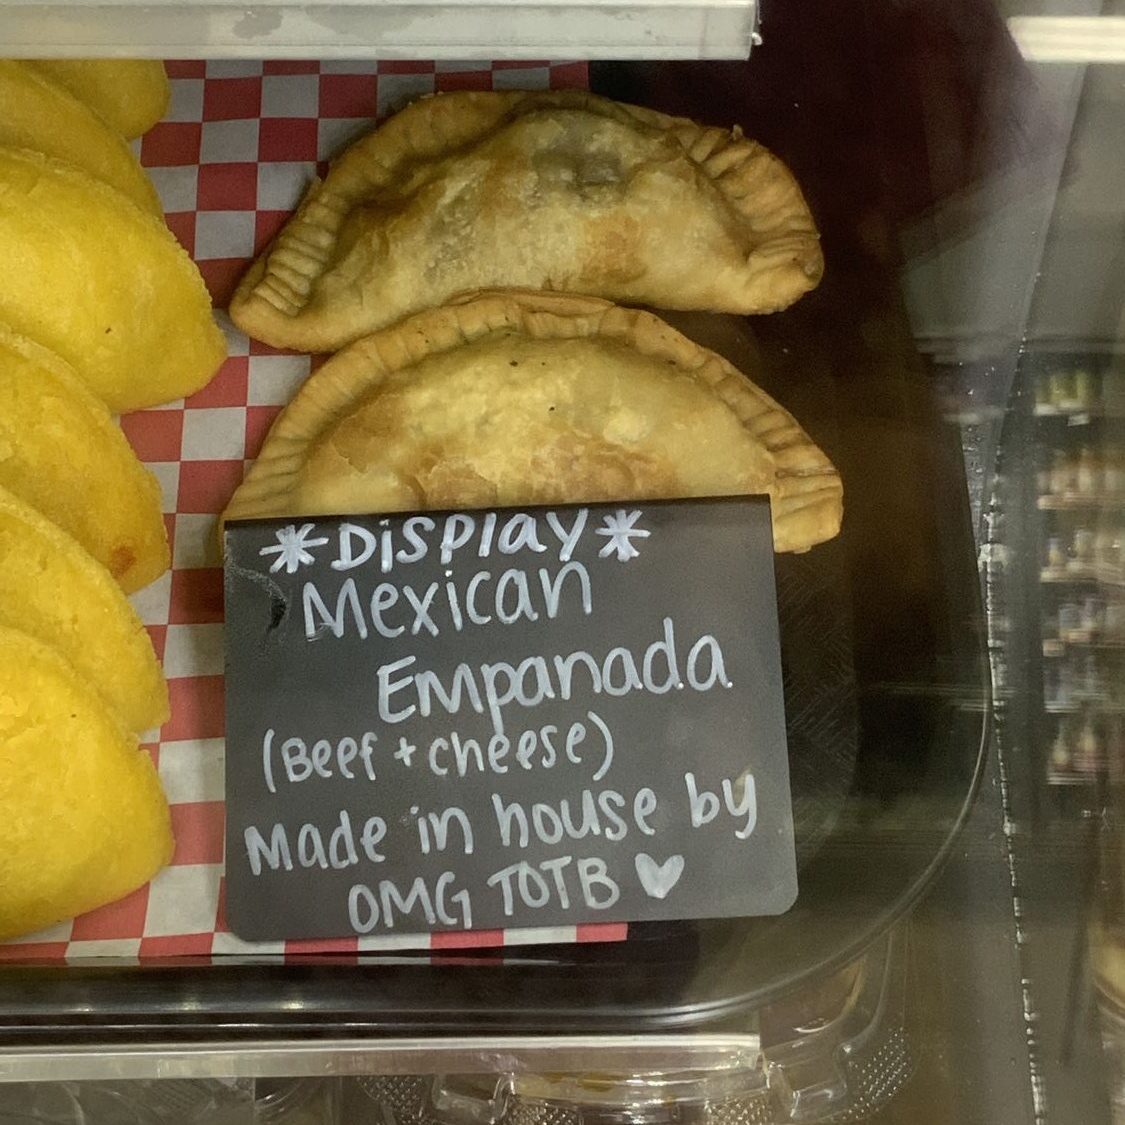 *Display*
Mexican
Empanada
(Beef + cheese)
Made in house by
OMG TOTB ♡